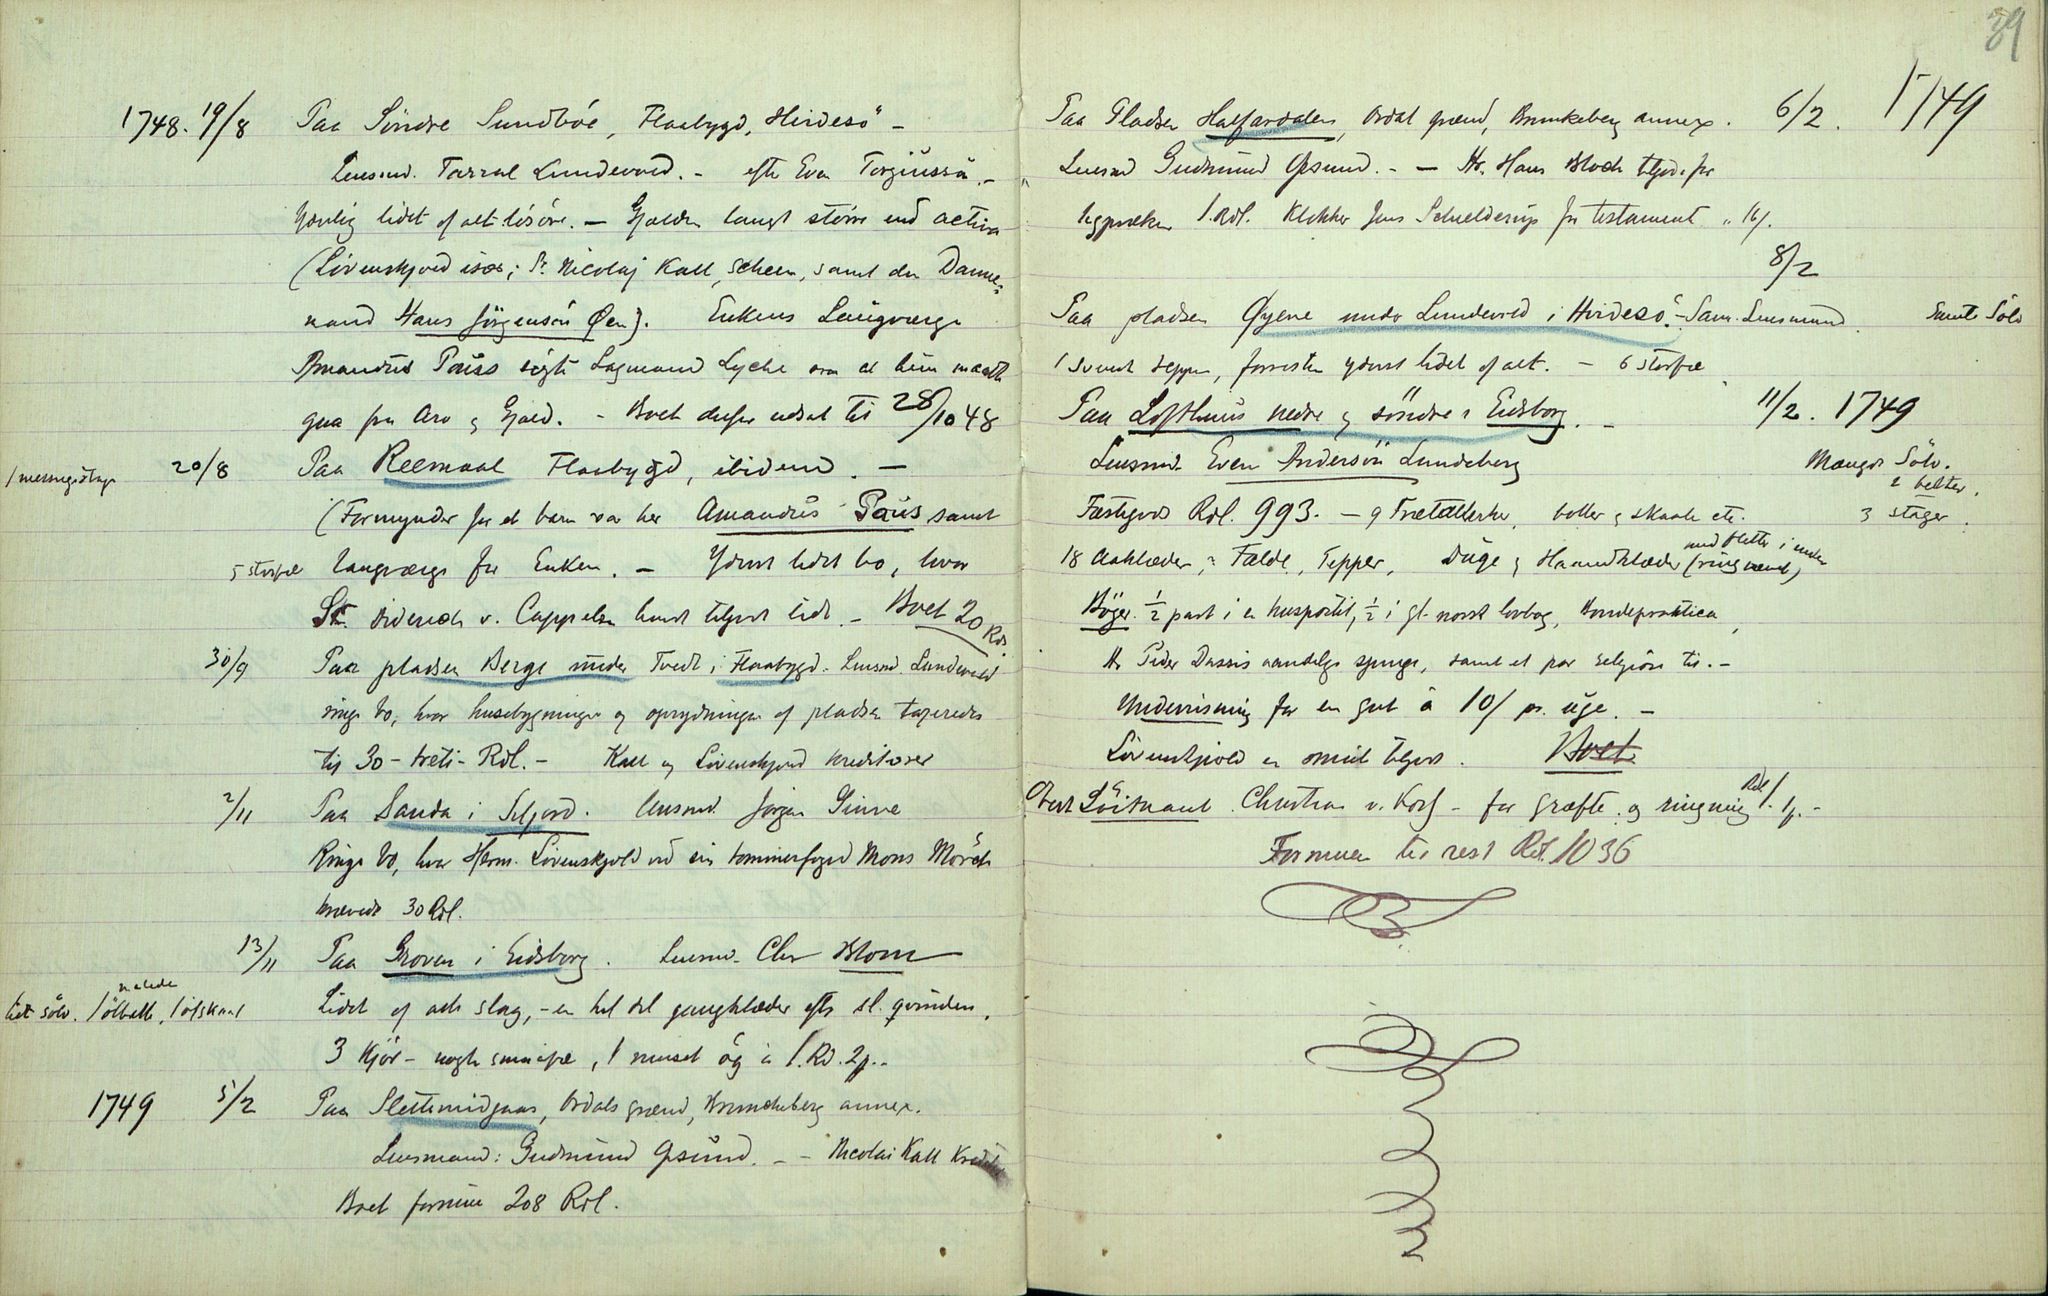 1748. 19/8 Paa Söndre Sundböe, Flaabygd, Hvideső -
Lensmd. Tarral Lundevold. - efter Even Torgiussön. -
Ynkelig lidet af alt lösöre. - Gjælden langt större end activa
(Lövenskjold især; Sr. Nicolaj Kall, Scheen, samt den Danne-
mand Hans Jörgensön Øen). Enkens Laugværge
Amandus Pauss Lagmand Lyche om at hun maatte
gaa fra Arv og Gjæld. - Boet derfor udsat til 28/10 48
1 messingstage 20/8 Paa Reemaal Flaabygd, ibidem. -
(Formynder for et barn var her Amandus Paus samt
5 storfæ laugværge for Enken. - Yderst lidet bo, hvor
Sr. Diderich v. Cappelen havde tilgode lidt. - Boet 20 Rdl.
30/9 Paa pladsen Berge under Tvedt i Flaabygd. Lensmd. Lundevold
ringe bo, hvor husebygninger og oprydninger af pladsen taxeredes
til 30 - treti - Rdl. - Kall og Lövenskjold kreditorer
2/11 Paa Sanda i Seljord. Lensmd. Jörgen Sinne
Ringe bo, hvor Herm. Lövenskjold ved sin tömmerfoged Mons Mörch
krævede 30 Rdl.
13/11 Paa Groven i Eidsborg. Lensmd. Chr Blom
malede
lidt sölv. 1 ölbolle, 1 ölskaal Lidet af alle slag, - en hel del gangklæder efter sl. qvinden.
3 Kjör - nogle smaafæ, 1 ög à 1. Rd. 2
1749 5/2 Paa Slettemidgaar, Ordals grænd, Brunckeberg annex.
Lensmand: Gudmund Opsund. - - Nicolai Kall Kreditor
Boet formue 208 Rdl.
39
Paa Pladsen Halfardalen, Ordal grænd, Brunkeberg annex. 6/2. 1749
Lensmd Gudmund Opsund. - - Hr. Hans Bloch tilgode for
ligpræken 1. Rdl. Klokker Jens Schielderup for testament
8/2
Paa pladsen Øyene under Lundevold i Hvideső. - Samme Lensmand. Samt Sölv
1 teppe, forresten yderst lidet af alt. - 6 storfæ
Paa Lofthuus nedre og söndre i Eidsborg. - 11/2. 1749
Lensmd. Even Andersön Lundeberg Mængde Sölv.
2 belter.
Fæstegods Rdl. 993. - 9 Trætallerker, boller og skaale etc. 3 stager.
med fletter i enden
18 Aaklæder, Fælde, Tepper, Duge og Haandklæder
Böger. 1/2 part i en huspostil, 1/2 i gl. norsk lovbog, Bondepractica,
Hr Peder Dassis aandelige sjunge, samt et par religiöse til. -
Underviisning for en gut à 10/ pr. uge. -
Lövenskjold en smule tilgode. Boet
Oberst Löitnant Christian v. Korf - for græfte og ringning Rdl 1.
Formuen til rest Rdl. 1036